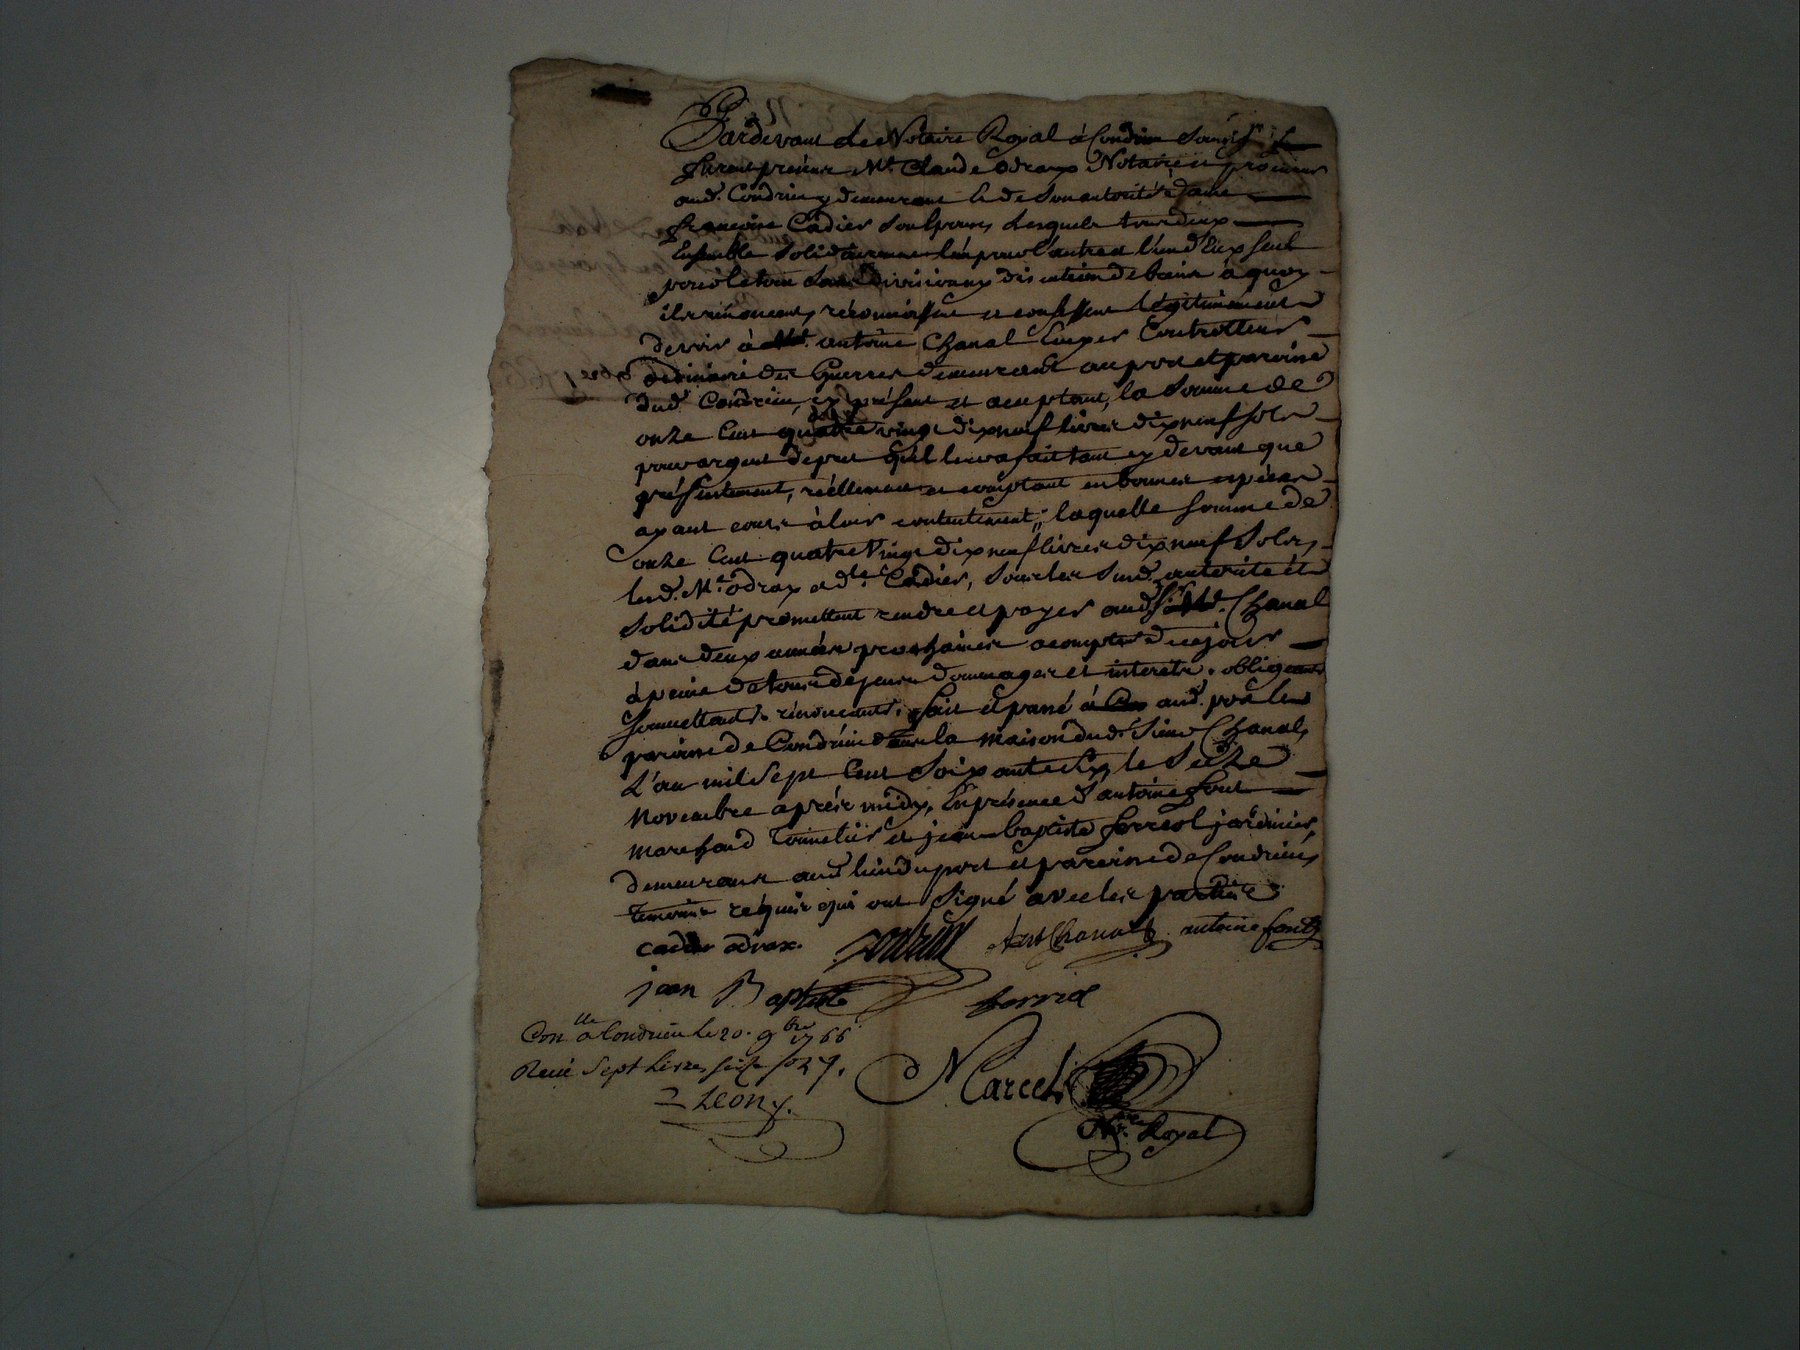 Pardevant le Notaire Royal à Condrieu Soussigné
furent présens Me. Claude Odrax Notaire et procureur
aud. Condrieu y demeurant & de Son autorité dame
françoise Cadier Son Epouse, Lesquels tous deux
Ensemble Solidairement l'un pour l'autre & l'un d'Eux Seul
pour le tout Sans division ny discution de biens à quoy
ils renoncent, reconnoissent et confessent légitimement
devoir à antoine Chanal Ecuyer Controlleur
ordinaire des Guerres demeurant au port et paroisse
dud. Condrieu, cy présent et aceptant, la Somme de
onze Cent quatre vingt dixneuf livres dixneuf sols
pour argent de pret qu'il leur a fait tant cy devant que
présentement, réellement et comptant en bonnes espéces
ayant cours à leur contentement, laquelle somme de
onze Cent quatre Vingt dixneuf livres dixneuf Sols,
lesd. Me. odrax et dlle. Cadier, Sous les Susd. autorité et
Solidité promettent rendre et payer aud. Sr. Chanal
dans deux années prochaines a compter de ce jour
à peine de tous dépens dommages et interets. obligeant
soumettant. renonceant. fait et passé aud. port
paroisse de Condrieu dans la maison dud. Sieur Chanal,
L'an mil Sept Cent Soixante Six, le Seize
Novembre après midy, En présence d'antoine Font
marchand Tonnelier et jean baptiste ferreol jardinier,
demeurant aud. lieu du port et paroisse de Condrieu,
temoins requis qui ont Signé avec les parties
cadier odrax. odrax Ant Chanal antoine font
jean Baptiste
Conlle. a Condrieu le 20. 9bre 1766
Reçu Sept Livres
Leony.
Marcet
Nre. Royal